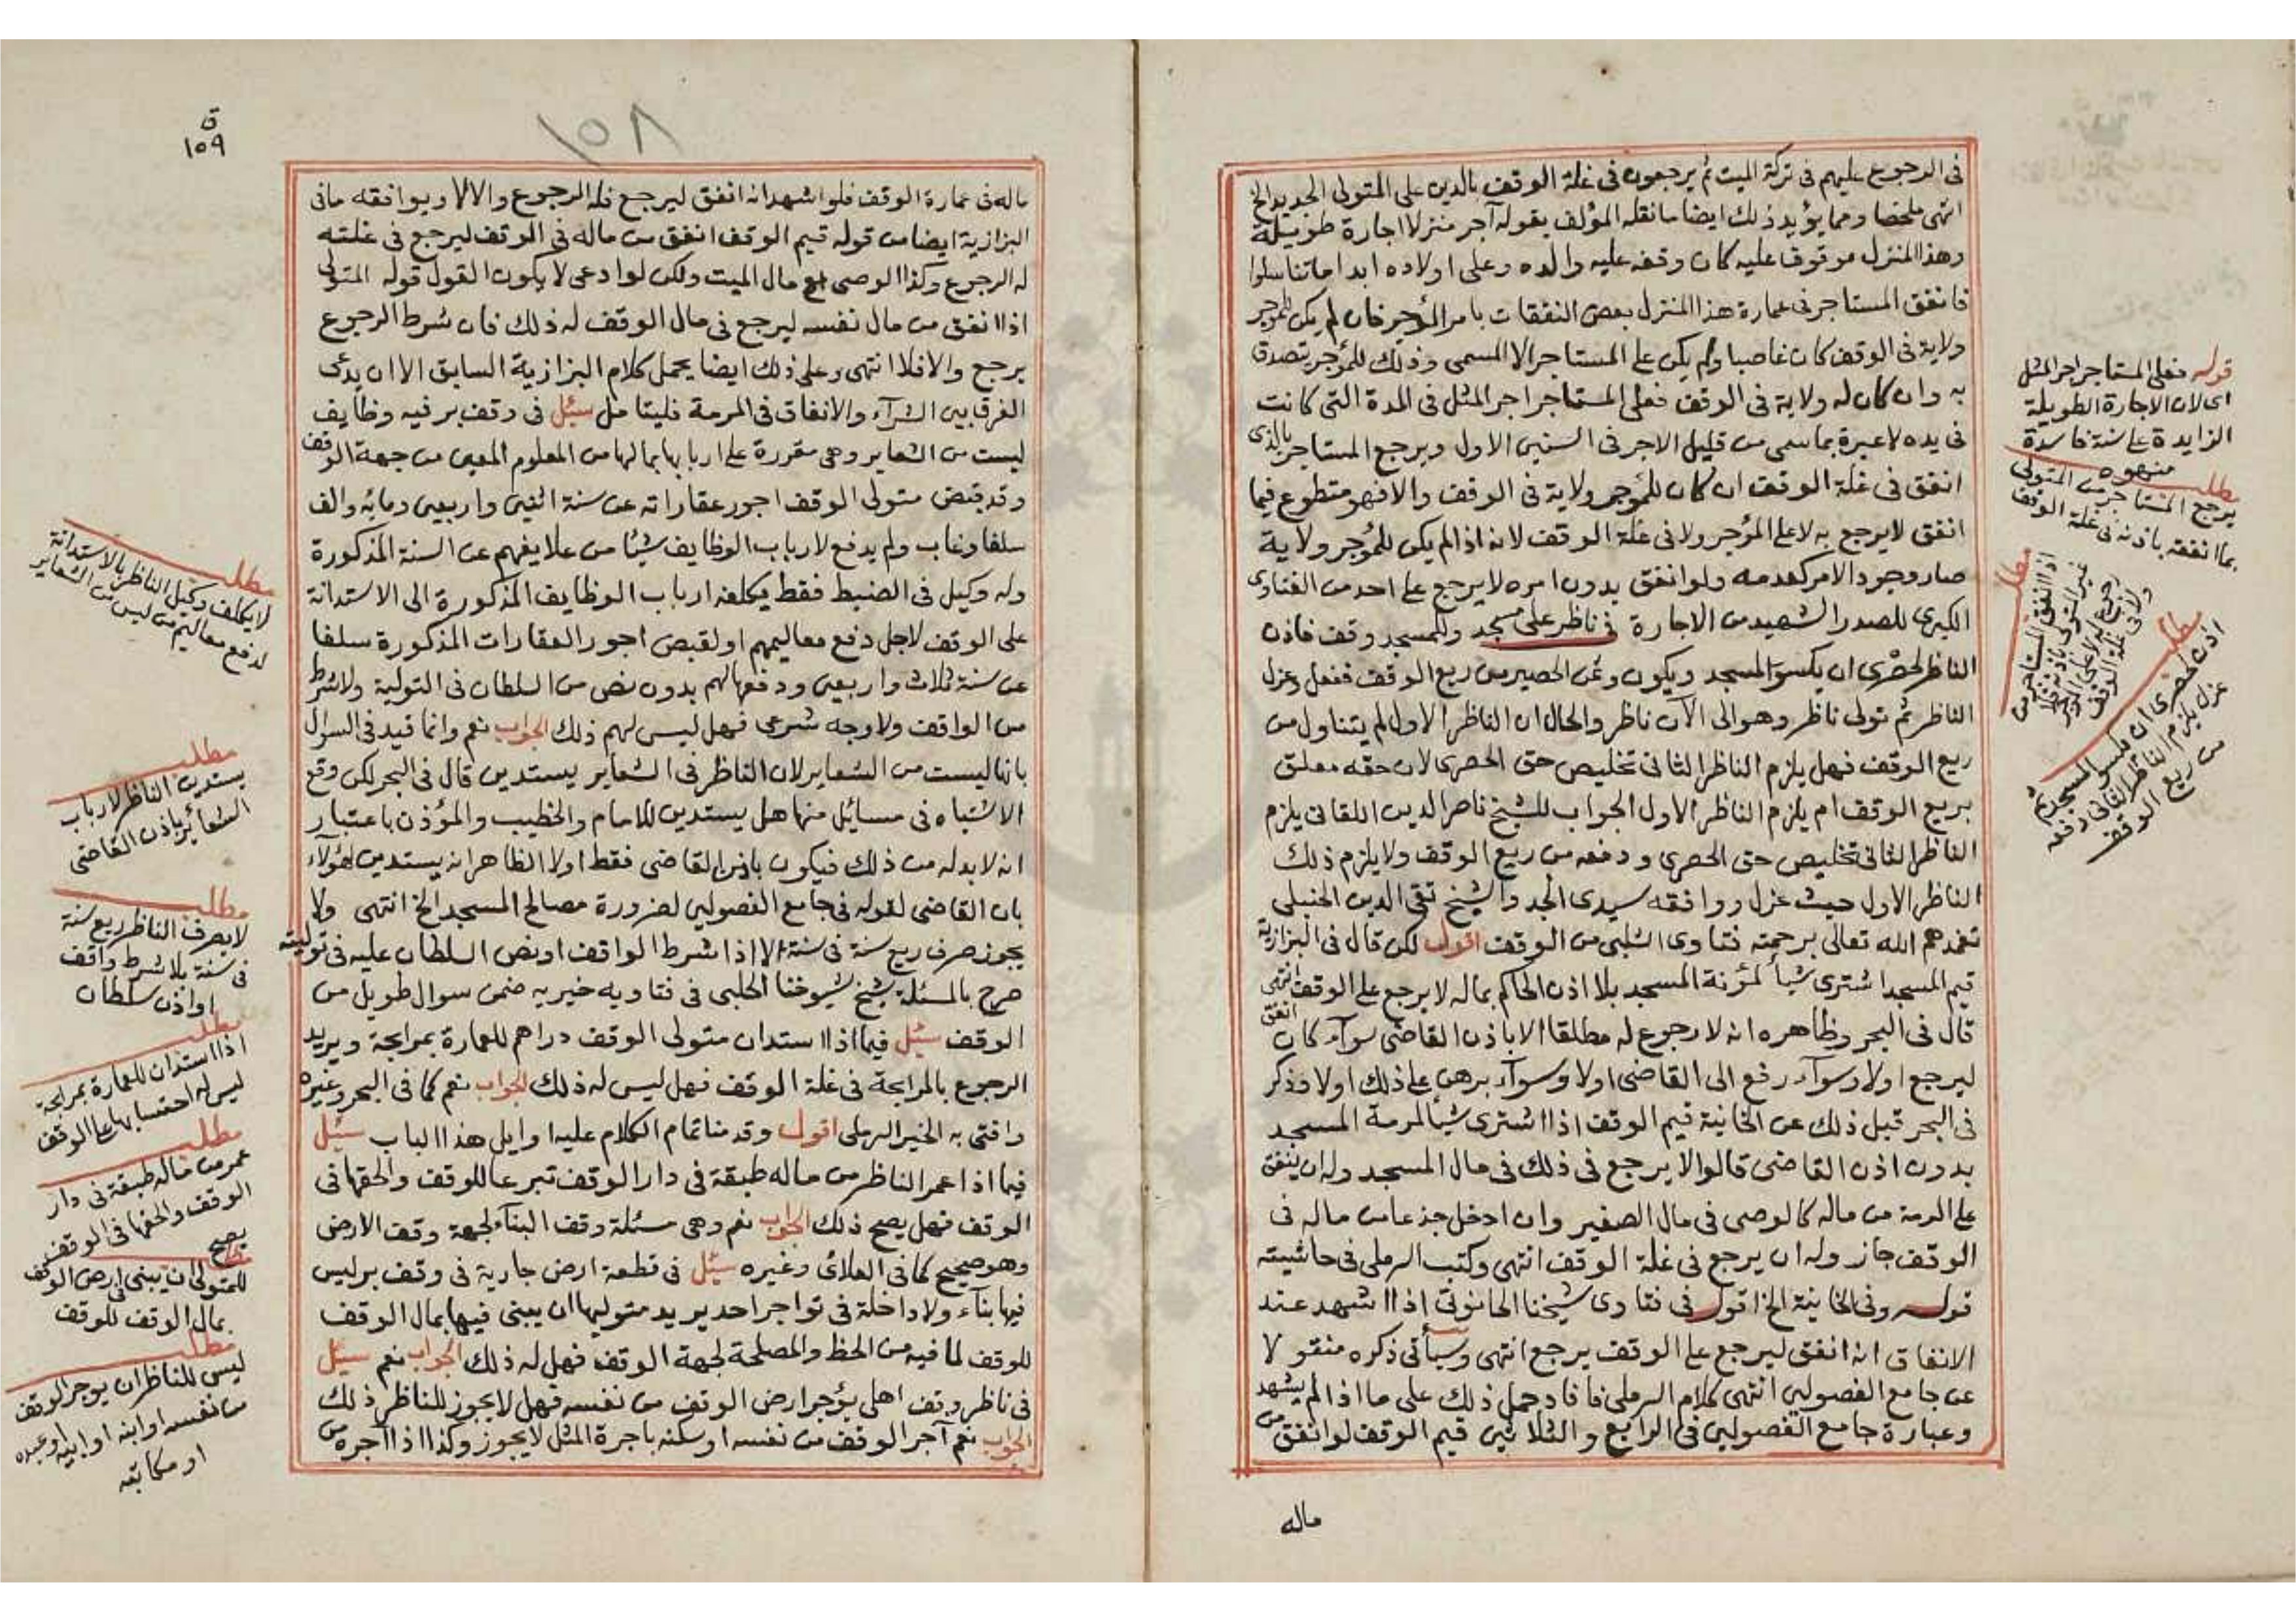 في الرجوع عليهم في تركة الميت ثم يرجعون في غلة الوقف بالدين على المتولى الجديد الخ
انتهى ملخصا ومما يؤيد ذلك ايضا ما نقله المؤلف بقوله آجر منزلا اجارة طويلة
وهذا المنزل موقوفا عليه كان وقفه عليه والده وعلى اولاده ابدا ما تناسلوا
فانفق المستاجر في عمارة هذا المنزل بعض النفقات بامر المؤجر فان لم يكن للمؤجر
ولاية في الوقف كان غاصبا ولم يكن على المستاجر الا المسمى وذلك للمؤجر يتصدق
به وان كان له ولاية في الوقف فعلى المستاجر اجر المثل في المدة التى كانت
في يده لا عبرة بما سمى من قليل الاجر في السنين الاول ويرجع المستاجر بالذى
انفق في غلة الوقف ان كان للمؤجر ولاية في الوقف والا فهو متطوع فيما
انفق لا يرجع به لا على المؤجر ولا في غلة الوقف لانه اذا لم يكن للمؤجر ولاية
صار وجود الامر كعدمه ولو انفق بدون امره لا يرجع على احد من الفتاوى
الكبرى للصدر الشهيد من الاجارة في ناظر على مسجد وللمسجد وقف فاذن
الناظر لحصرى ان يكسو المسجد ويكون وثمن الحصير من ريع الوقف ففعل وعزل
الناظر ثم تولى ناظر وهو الى الآن ناظر والحال ان الناظر الاول لم يتناول من
ريع الوقف فهل يلزم الناظر الثانى تخليص حق الحصرى لان حقه معلق
بريع الوقف ام يلزم الناظر الاول الجواب للشيخ ناصر الدين اللقانى يلزم
الناظر الثانى تخليص حق الحصرى ودفعه من ريع الوقف ولا يلزم ذلك
الناظر الاول حيث عزل ووافقه سيدى الجد والشيخ تقى الدين الحنبلى
تغمدهم الله تعالى برحمته فتاوى الشلبى من الوقف اقول لكن قال في البزازية
قيم المسجد اشترى شيأ لمؤنة المسجد بلا اذن الحاكم بماله لا يرجع على الوقف انتهى
قال في البحر وظاهره انه لا رجوع له مطلقا الا باذن القاضى سواء كان انفق
ليرجع اولا وسواء رفع الى القاضى اولا وسواء برهن على ذلك اولا وذكر
في البحر قبل ذلك عن الخانية قيم الوقف اذا اشترى شيأ لمرمة المسجد
بدون اذن القاضى قالوا لا يرجع في ذلك في مال المسجد وله ان ينفق
على المرمة من ماله كالوصى في مال الصغير وان ادخل جذعا من ماله في
الوقف جاز وله ان يرجع في غلة الوقف انتهى وكتب الرملى في حاشيته
قوله وفى الخانية الخ اقول في فتاوى شيخنا الحانوتى اذا اشهد عند
الانفاق انه انفق ليرجع على الوقف يرجع انتهى وسيأتى ذكره منقولا
عن جامع الفصولين انتهى كلام الرملى فافاد حمل ذلك على ما اذا لم يشهد
وعبارة جامع الفصولين في الرابع والثلاثين قيم الوقف لو انفق من
ماله
قوله فعلى المستاجر اجر المثل
اى لان الاجارة الطويلة
الزايدة على سنة فاسدة
منهوه
مطلب
يرجع المستاجر من المتولى
بما انفقه باذنه في غلة الوقف
مطلب
اذا انفق المستاجر من
غير المتولى باذنه فلا
رجوع له لا على المؤجر
ولا في غلة الوقف
مطلب
اذن لحصرى ان يكسو المسجد ثم
عزل يلزم الناظر الثانى دفعه
من ريع الوقف
ق
١٥٩
١٥٨
ماله في عمارة الوقف فلو اشهد انه انفق ليرجع فله الرجوع والا لا ويوافقه ما في
البزازية ايضا من قوله قيم الوقف انفق من ماله في الوقف ليرجع في غلته
له الرجوع وكذا الوصى مع مال الميت ولكن لو ادعى لا يكون القول قوله المتولى
اذا انفق من مال نفسه ليرجع في مال الوقف له ذلك فان شرط الرجوع
يرجع والا فلا انتهى وعلى ذلك ايضا يحمل كلام البزازية السابق الا ان يدعى
الفرق بين الشراء والانفاق في المرمة فليتامل سئل في وقف بر فيه وظايف
ليست من الشعاير وهى مقررة على اربابها بما لها من المعلوم المعين من جهة الوقف
وقد قبض متولى الوقف اجور عقاراته عن سنة اثنين واربعين ومائه والف
سلفا وغاب ولم يدفع لارباب الوظايف شيئا من علايفهم عن السنة المذكورة
وله وكيل في الضبط فقط يكلفه ارباب الوظايف المذكورة الى الاستدانة
على الوقف لاجل دفع معاليمهم او لقبض اجور العقارات المذكورة سلفا
عن سنة ثلاث واربعين ودفعها لهم بدون نص من السلطان في التولية ولا شرط
من الواقف ولا وجه شرعى فهل ليس لهم ذلك الجواب نعم وانما قيد في السوال
بانها ليست من الشعاير لان الناظر في الشعاير يستدين قال في البحر لكن وقع
الاشتباه في مسائل منها هل يستدين للامام والخطيب والمؤذن باعتبار
انه لا بد له من ذلك فيكون باذن القاضى فقط اولا الظاهر انه يستدين لهؤلاء
بان القاضى لقوله في جامع الفصولين لضرورة مصالح المسجد الخ انتهى ولا
يجوز صرف ريع سنة في سنة الا اذا شرط الواقف او نص السلطان عليه في توليته
صرح بالمسئلة شيخ شيوخنا الحلبى في فتاويه خيريه ضمن سوال طويل من
الوقف سئل فيما اذا استدان متولى الوقف دراهم للعمارة بمرابحة ويريد
الرجوع بالمرابحة في غلة الوقف فهل ليس له ذلك الجواب نعم كما في البحر وغيره
وافتى به الخير الرملى اقول وقدمنا تمام الكلام عليه اوايل هذا الباب سئل
فيما اذا عمر الناظر من ماله طبقة في دار الوقف تبرعا للوقف والحقها في
الوقف فهل يصح ذلك الجواب نعم وهى مسئلة وقف البناء لجهة وقف الارض
وهو صحيح كما في العلائى وغيره سئل في قطعة ارض جارية في وقف بر ليس
فيها بناء ولا داخلة في تواجر احد يريد متوليها ان يبنى فيها بمال الوقف
للوقف لما فيه من الحظ والمصلحة لجهة الوقف فهل له ذلك الجواب نعم سئل
في ناظر وقف اهلى يؤجر ارض الوقف من نفسه فهل لا يجوز للناظر ذلك
الجواب نعم آجر الوقف من نفسه او سكنه باجرة المثل لا يجوز وكذا اذا آجره من
مطلب
لا يكلف وكيل الناظر بالاستدانة
لدفع معاليم من ليس من الشعاير
مطلب
يستدين الناظر لارباب
الشعائر باذن القاضى
مطلب
لا يصرف الناظر ريع سنة
في سنة بلا شرط واقف
او اذن سلطان
مطلب
اذا استدان للعمارة بمرابحة
ليس له احتسابها على الوقف
مطلب
عمر من ماله طبقة في دار
الوقف والحقها في الوقف
يصح
مطلب
للمتولى ان يبنى في ارض الوقف
بمال الوقف للوقف
مطلب
ليس للناظر ان يوجر الوقف
من نفسه او ابنه او ابيه او عبده
او مكاتبه